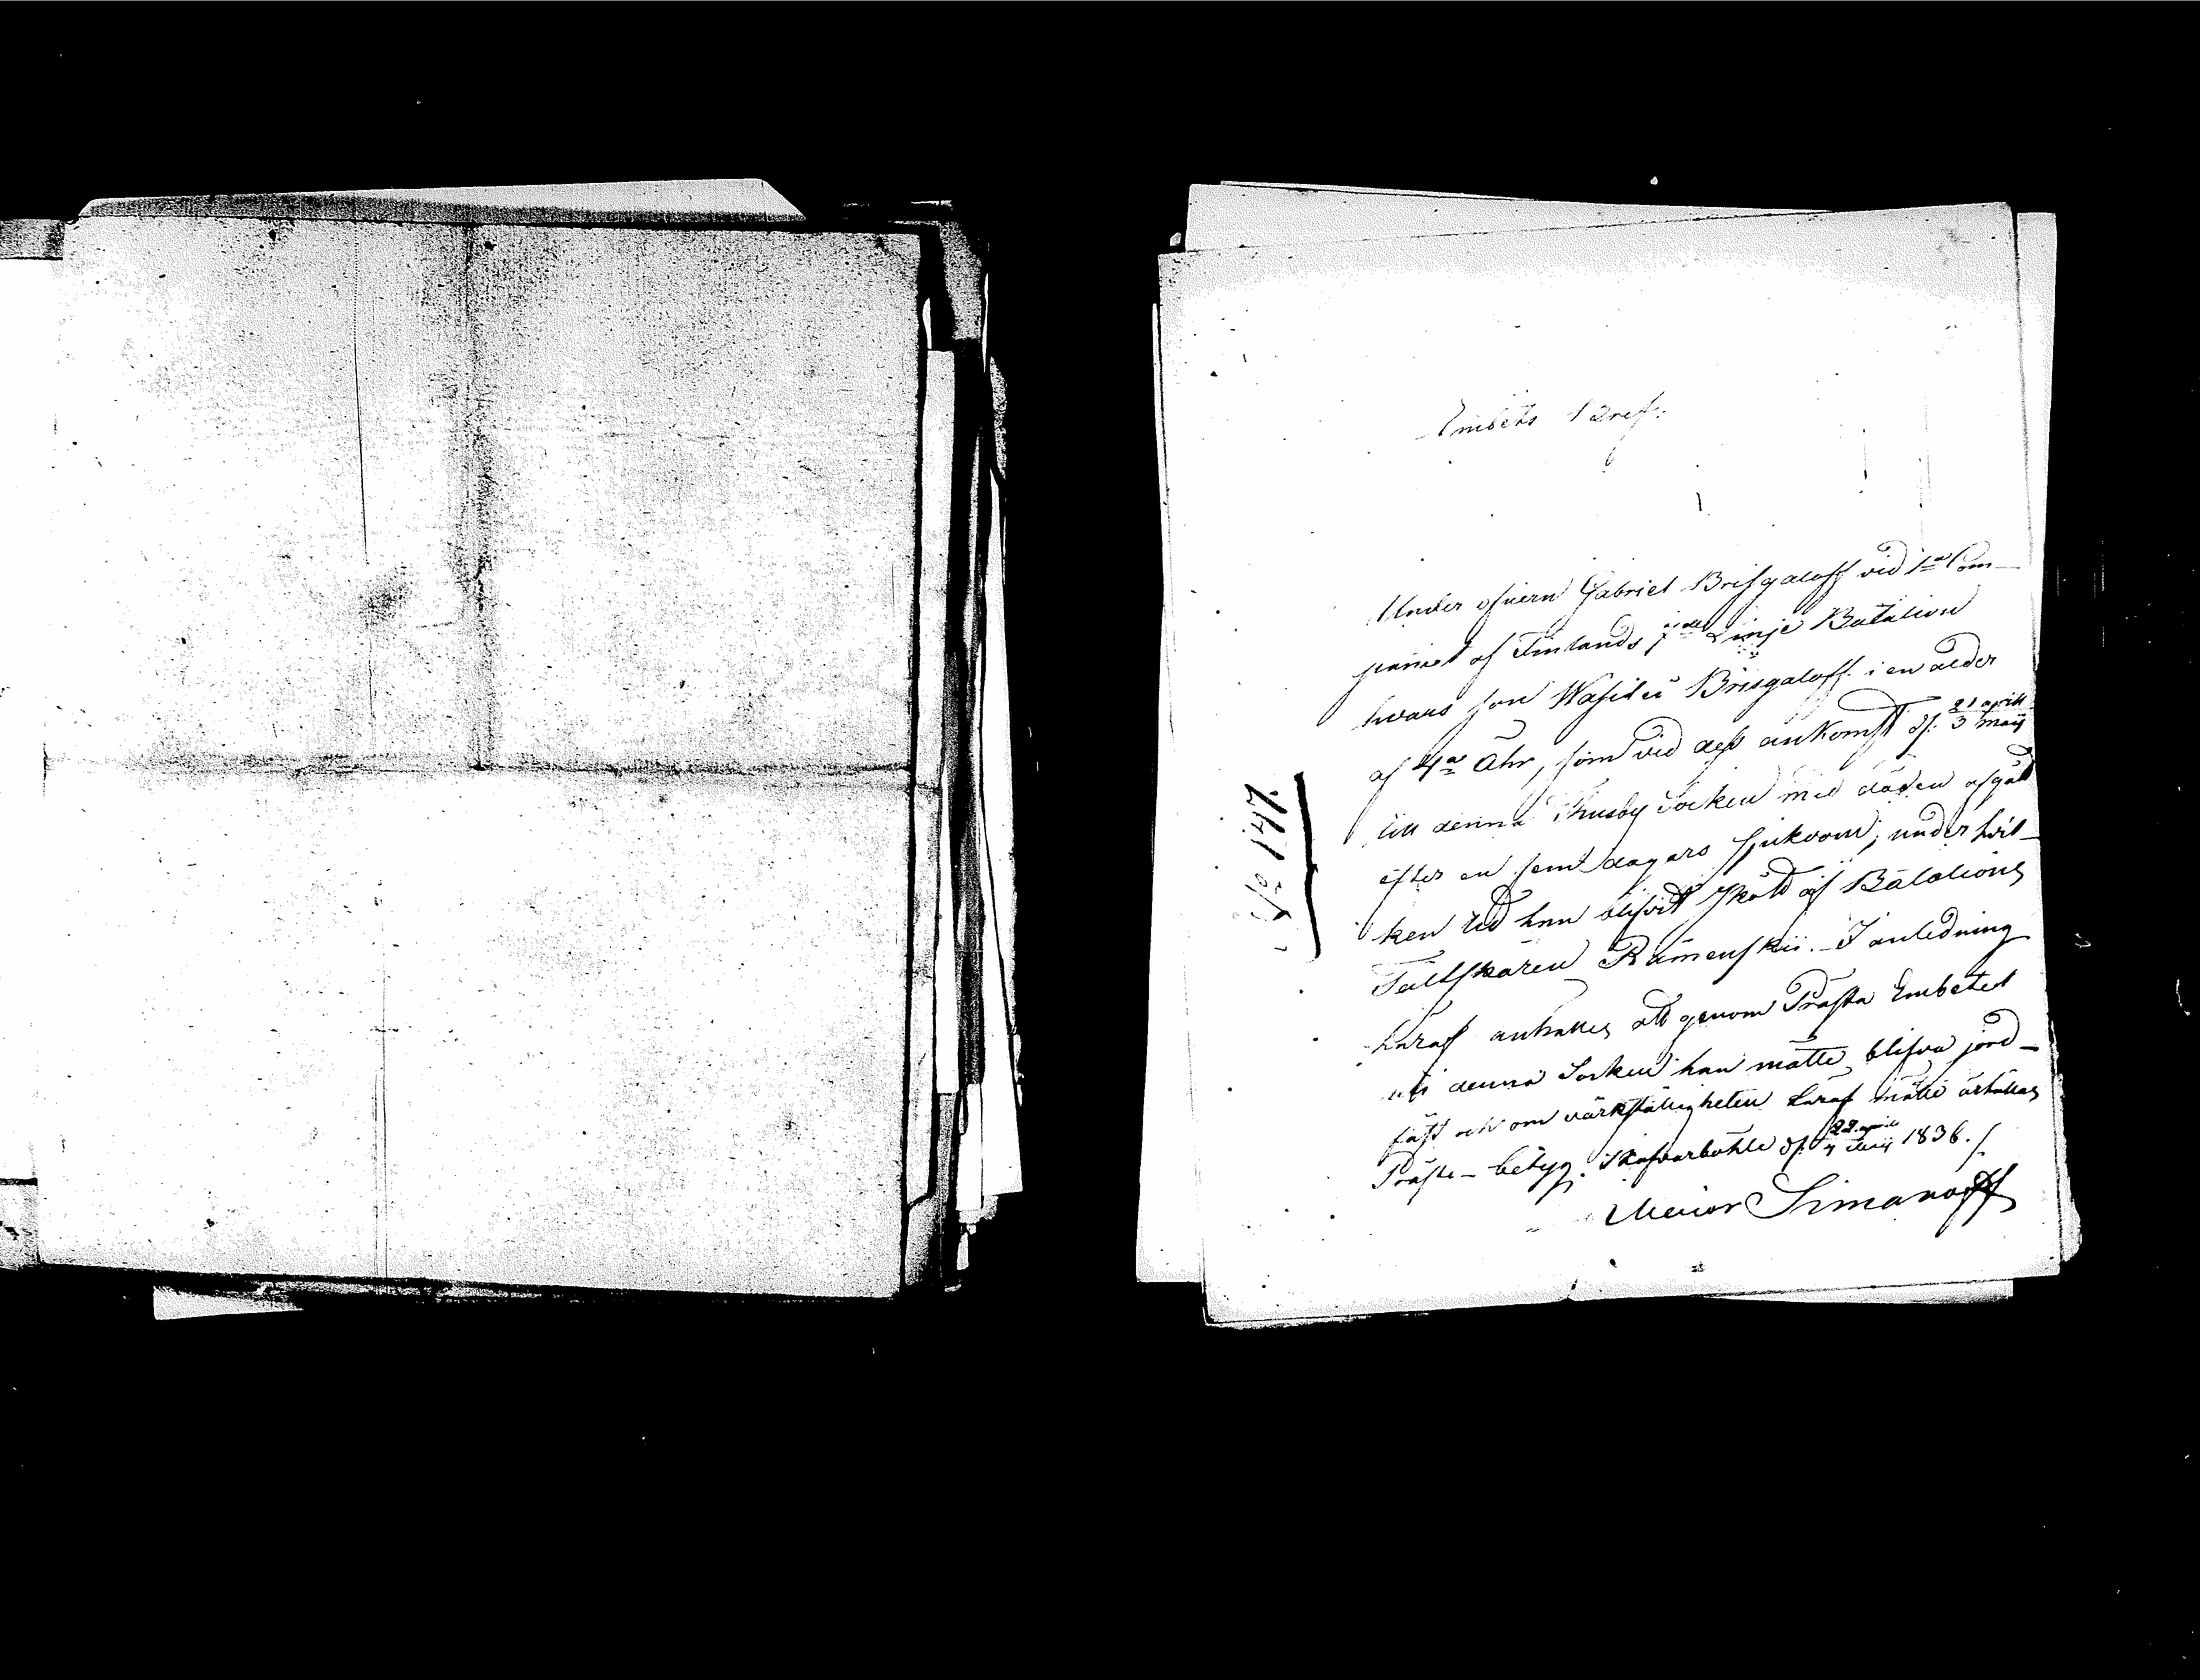 Embets Bref:
Under oficern Gabriel Brisgaloff vid 1sta Com-
paniet af Finlands Linje Batalion
hvars son Wasilei Brisgaloff i en ålder
af 4ra Åhr, som vid dess ankomst d. 21 april 3 Maij
till denna Thusby Socken med döden afgåt
efter en fem dagars sjukdom; under hvil-
ken tid han blifvit skött af Batalions
Fältskären Ramenskii. I anledning
häraf anhålles att genom Prästa Embetet
uti denna Socken han måtte blifva jord-
fäst och om värkställigheten häraf måtte erhållas
Präste-betyg. Skafvarböhle d. 22 april 4 Maij 1836.
Maior Simanoff
No 147.